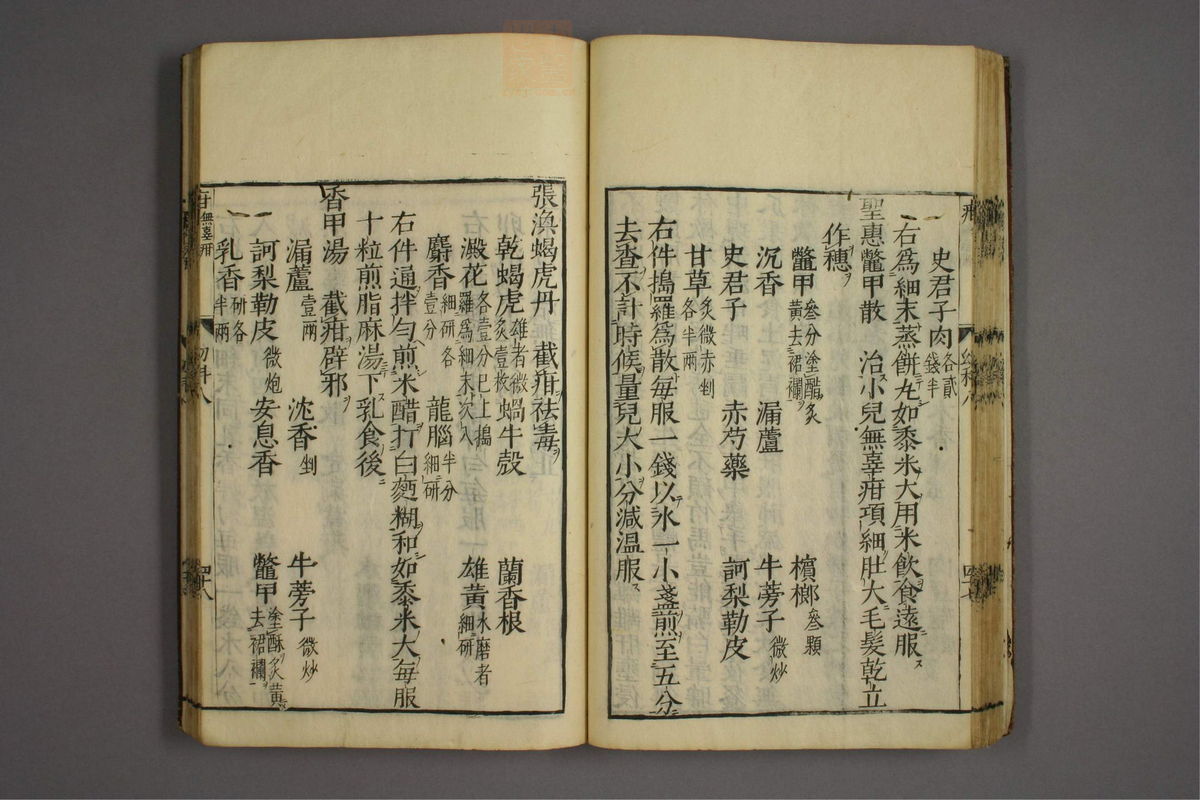 史君子肉各貳錢半
一右爲細末蒸餅丸如黍米大用米飲食遠服ス
聖惠鼈甲散　治小兒無辜疳項細肚大毛髮乾立
作穗ヲ
鼈甲叄分塗醋炙黃去裙襴　檳榔叄顆
沉香　漏蘆　牛蒡子微炒
史君子　赤芍藥　訶梨勒皮
甘草炙微赤剉各半兩
右件搗羅爲散每服一錢以水一小盞煎至五分
去查不計時候量兒大小分減溫服ス
張渙蝎虎丹　截疳祛毒
乾蝎虎雄者微炙壹枚　蝸牛殼　蘭香根
澱花各壹分已上搗羅爲細末次入　雄黃水磨者細研
麝香細研各壹分　龍腦半分細研
右件通拌勻煎米醋打白麪糊和如黍米大每服
十粒煎脂麻湯下乳食後
香甲湯　截疳辟邪
漏蘆壹兩　沈香剉　牛蒡子微炒
一訶梨勒皮微炮　安息香　鼈甲塗酥炙黃去裙襴
一乳香研各半兩
無辜疳
幼科八
四十八